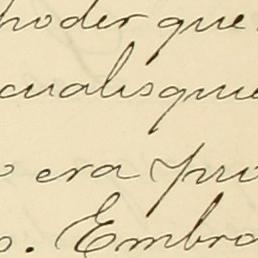 poder que
cualisquie
o era pro
o. Embro